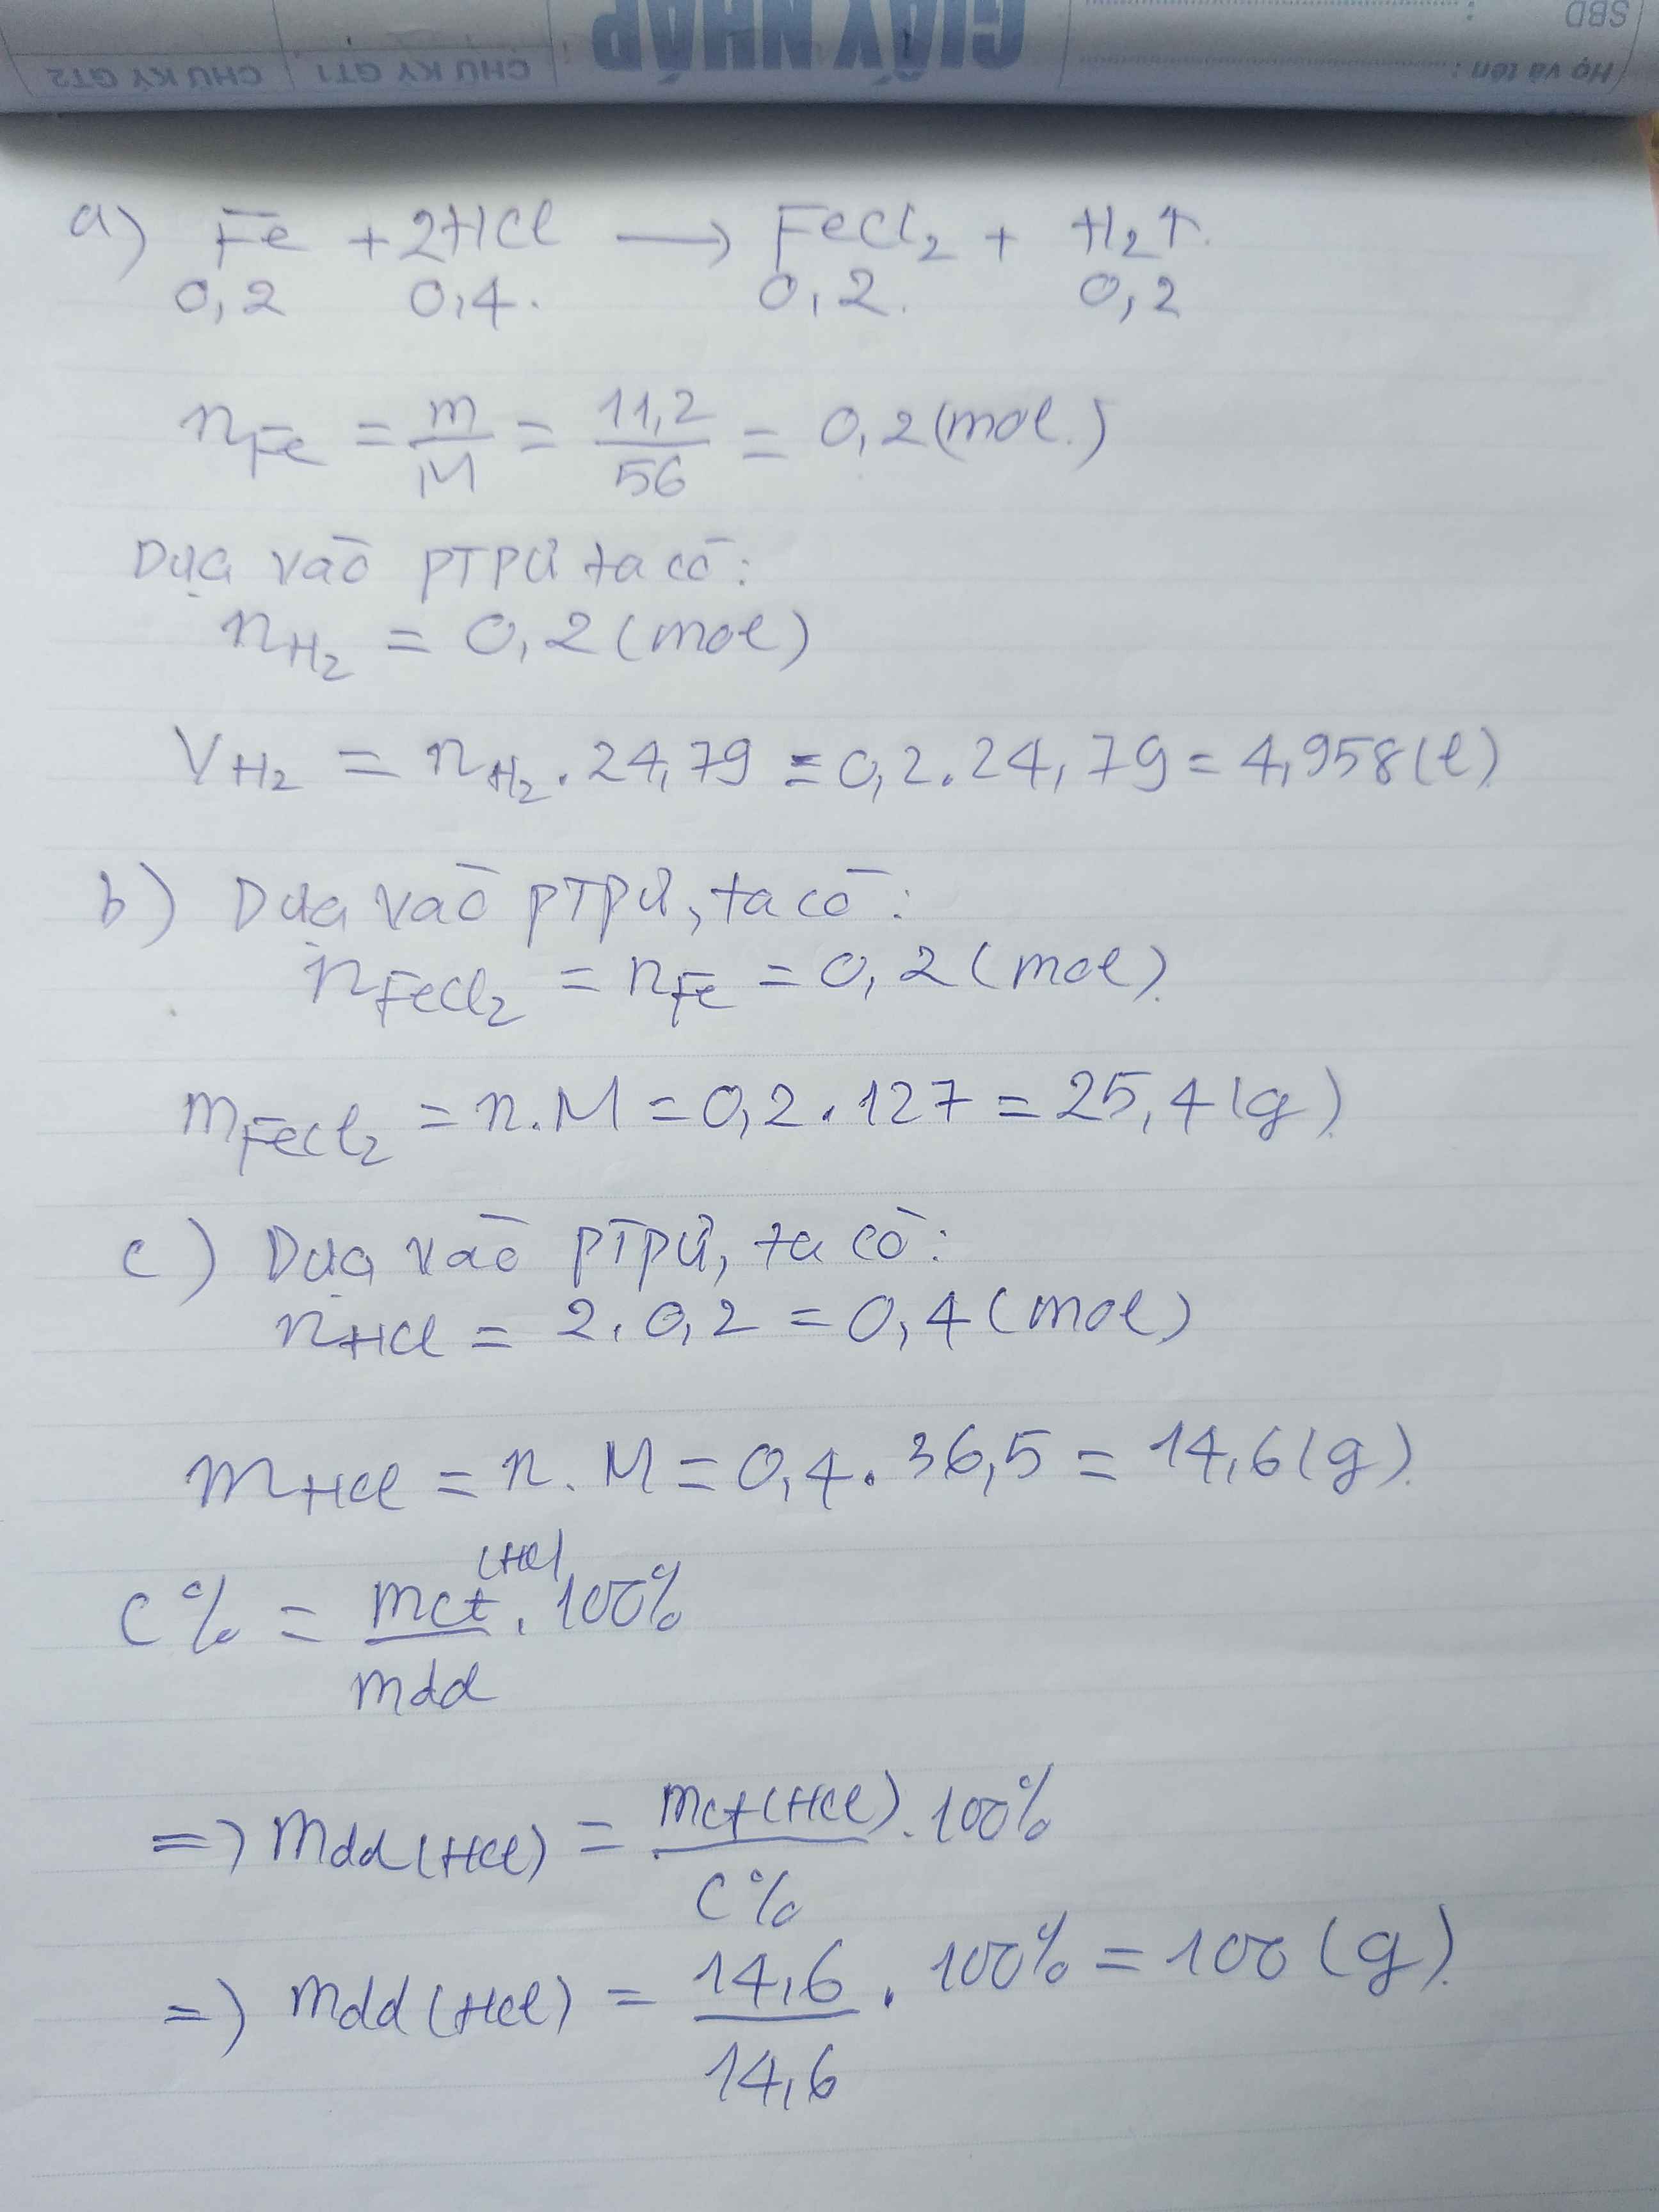 SBD :
Họ và tên :
GIẤY NHÁP
CHỮ KÝ GT1
CHỮ KÝ GT2
a) Fe + 2HCl → FeCl₂ + H₂↑.
0,2 0,4. 0,2. 0,2
nFe = m/M = 11,2/56 = 0,2 (mol.)
Dựa vào PTPƯ ta có:
nH₂ = 0,2 (mol)
VH₂ = nH₂ . 24,79 = 0,2 . 24,79 = 4,958 (l)
b) Dựa vào PTPƯ, ta có:
nFeCl₂ = nFe = 0,2 (mol)
mFeCl₂ = n.M = 0,2 . 127 = 25,4 (g)
c) Dựa vào PTPƯ, ta có:
nHCl = 2.0,2 = 0,4 (mol)
mHCl = n.M = 0,4 . 36,5 = 14,6 (g)
C% = mct(HCl)/mdd . 100%
=> mdd(HCl) = mct(HCl)/C% . 100%
=> mdd(HCl) = 14,6/14,6 . 100% = 100 (g)